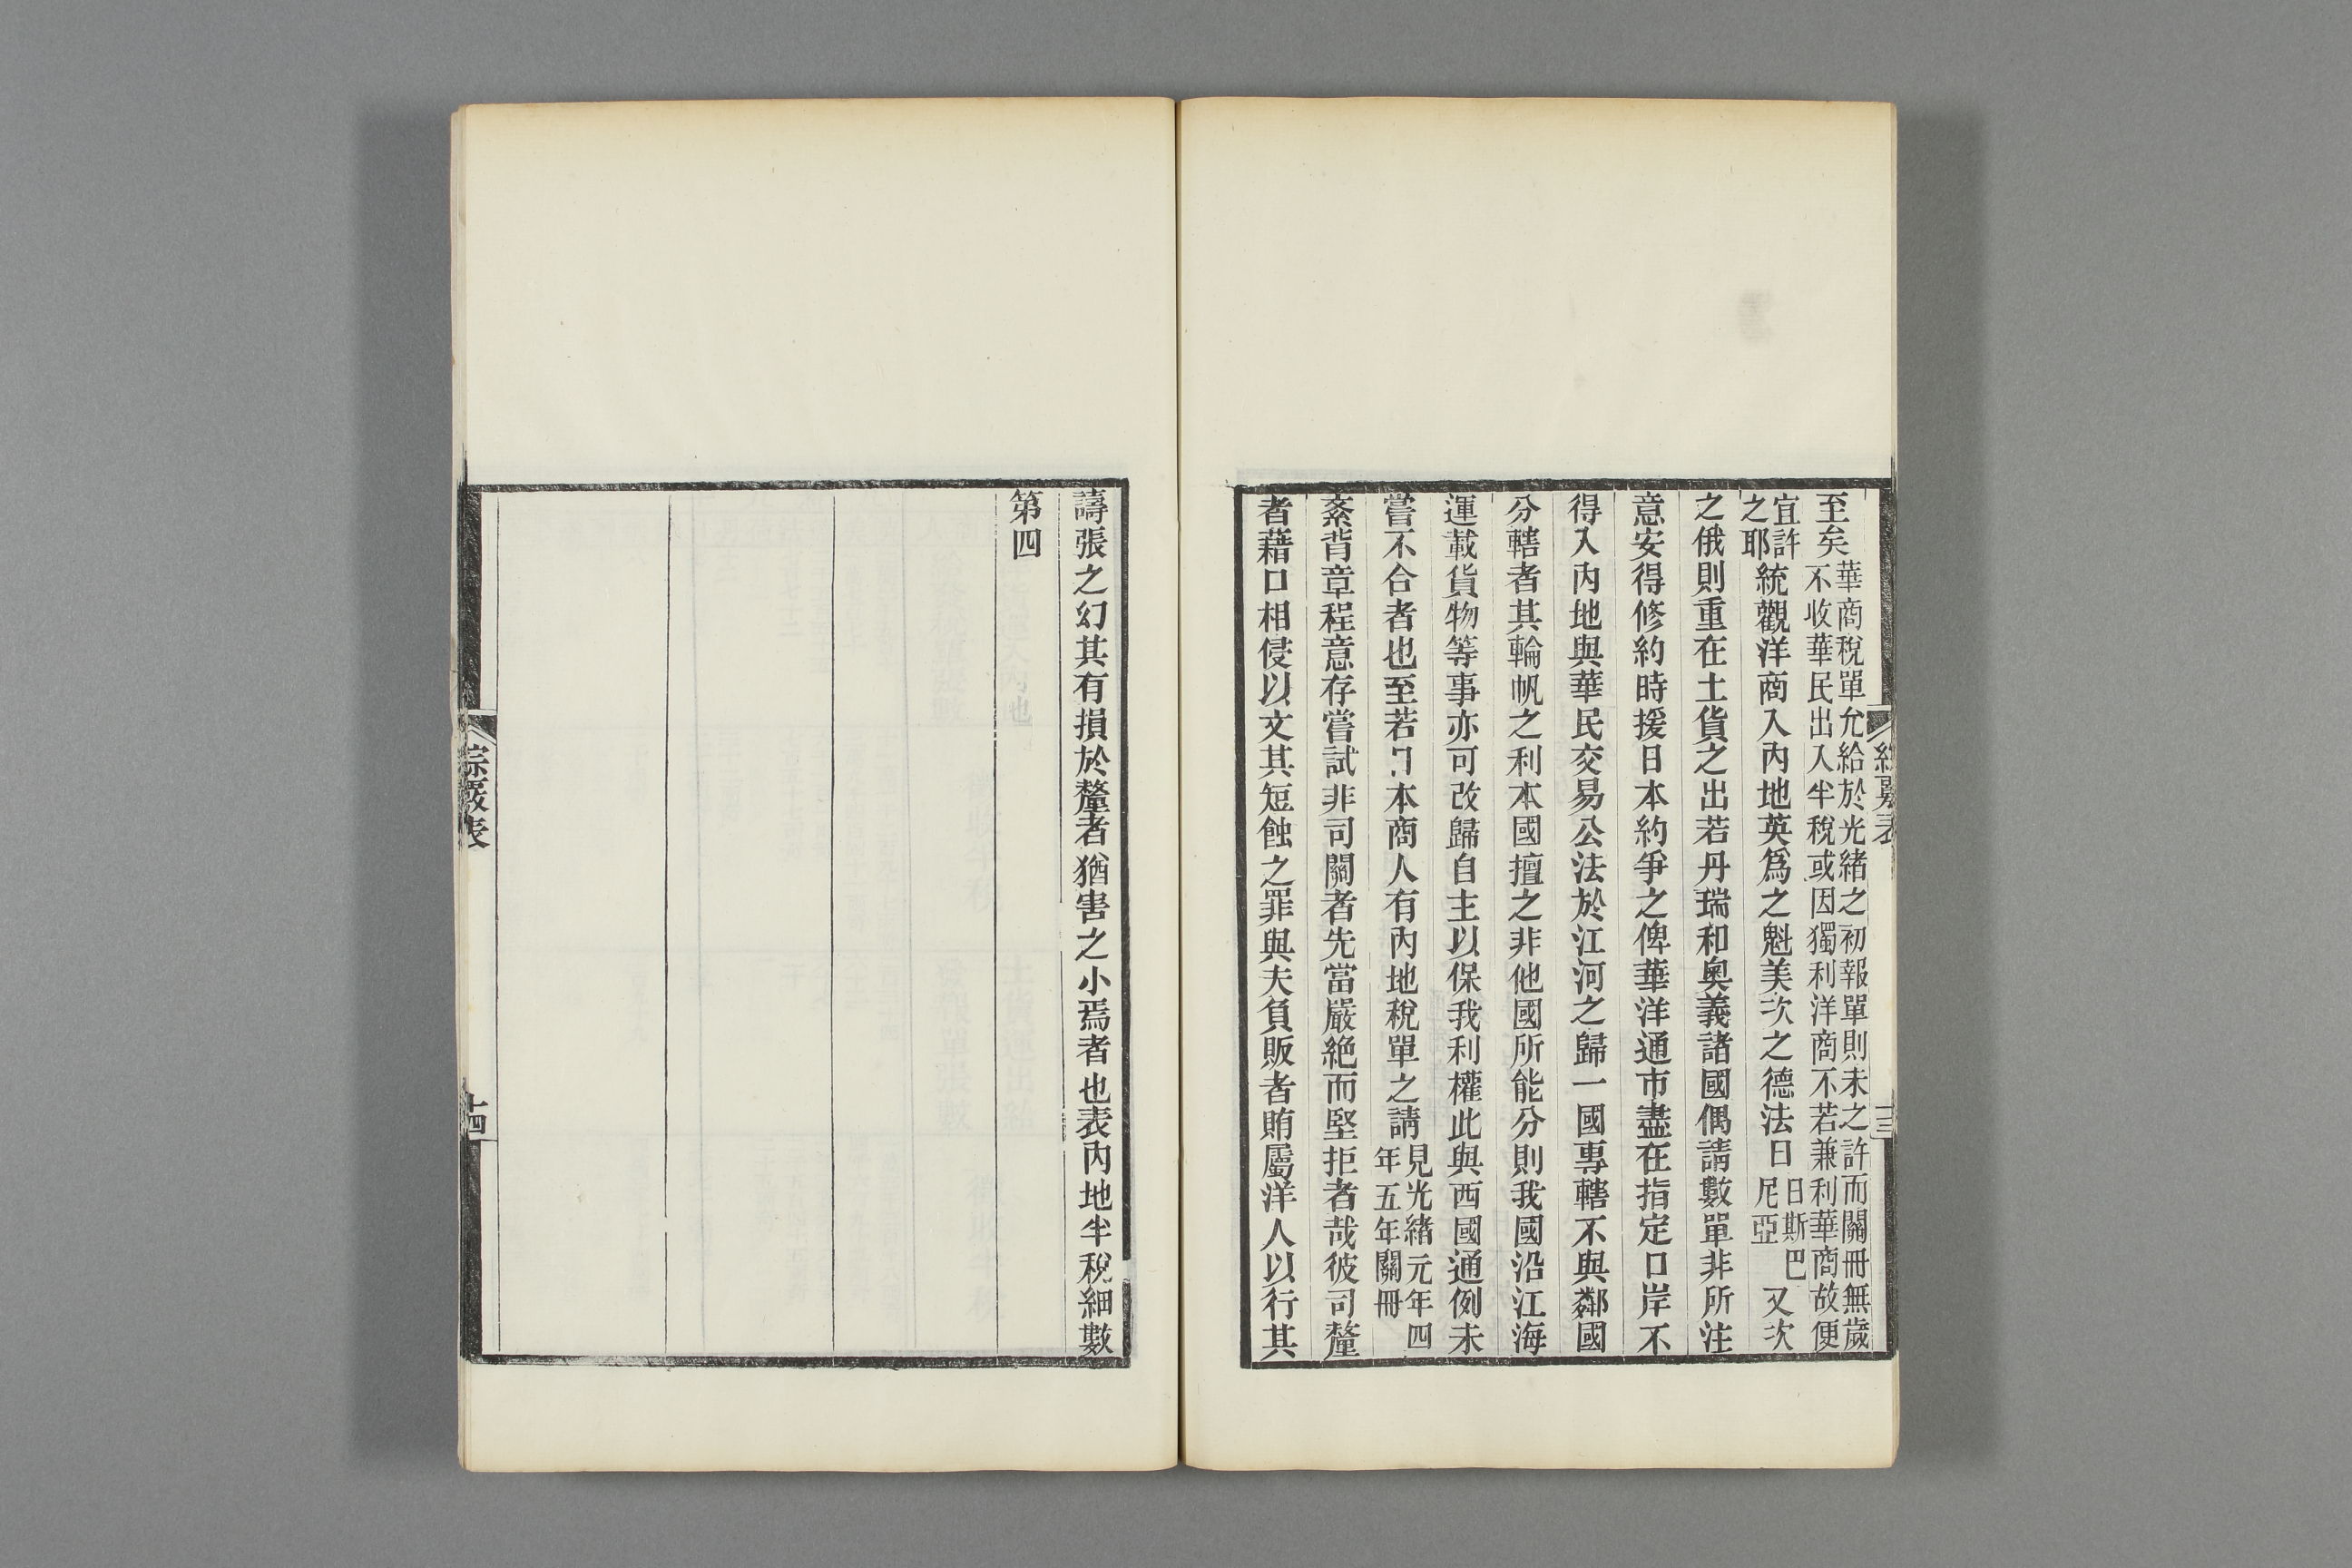 至矣華商稅單允給於光緒之初報單則未之許而關冊無歲
不收華民出入半稅或因獨利洋商不若兼利華商故便
宜許
之耶統觀洋商入內地英爲之魁美次之德法日日斯巴
尼亞又次
之俄則重在土貨之出若丹瑞和奧義諸國偶請數單非所注
意安得修約時援日本約爭之俾華洋通市盡在指定口岸不
得入內地與華民交易公法於江河之歸一國專轄不與鄰國
分轄者其輪帆之利本國擅之非他國所能分則我國沿江海
運載貨物等事亦可改歸自主以保我利權此與西國通例未
嘗不合者也至若日本商人有內地稅單之請見光緒元年四
年五年關冊
紊背章程意存嘗試非司關者先當嚴絕而堅拒者哉彼司釐
者藉口相侵以文其短蝕之罪與夫負販者賄屬洋人以行其
綜覈表
十三
譸張之幻其有損於釐者猶害之小焉者也表內地半稅細數
第四
綜覈表
十四